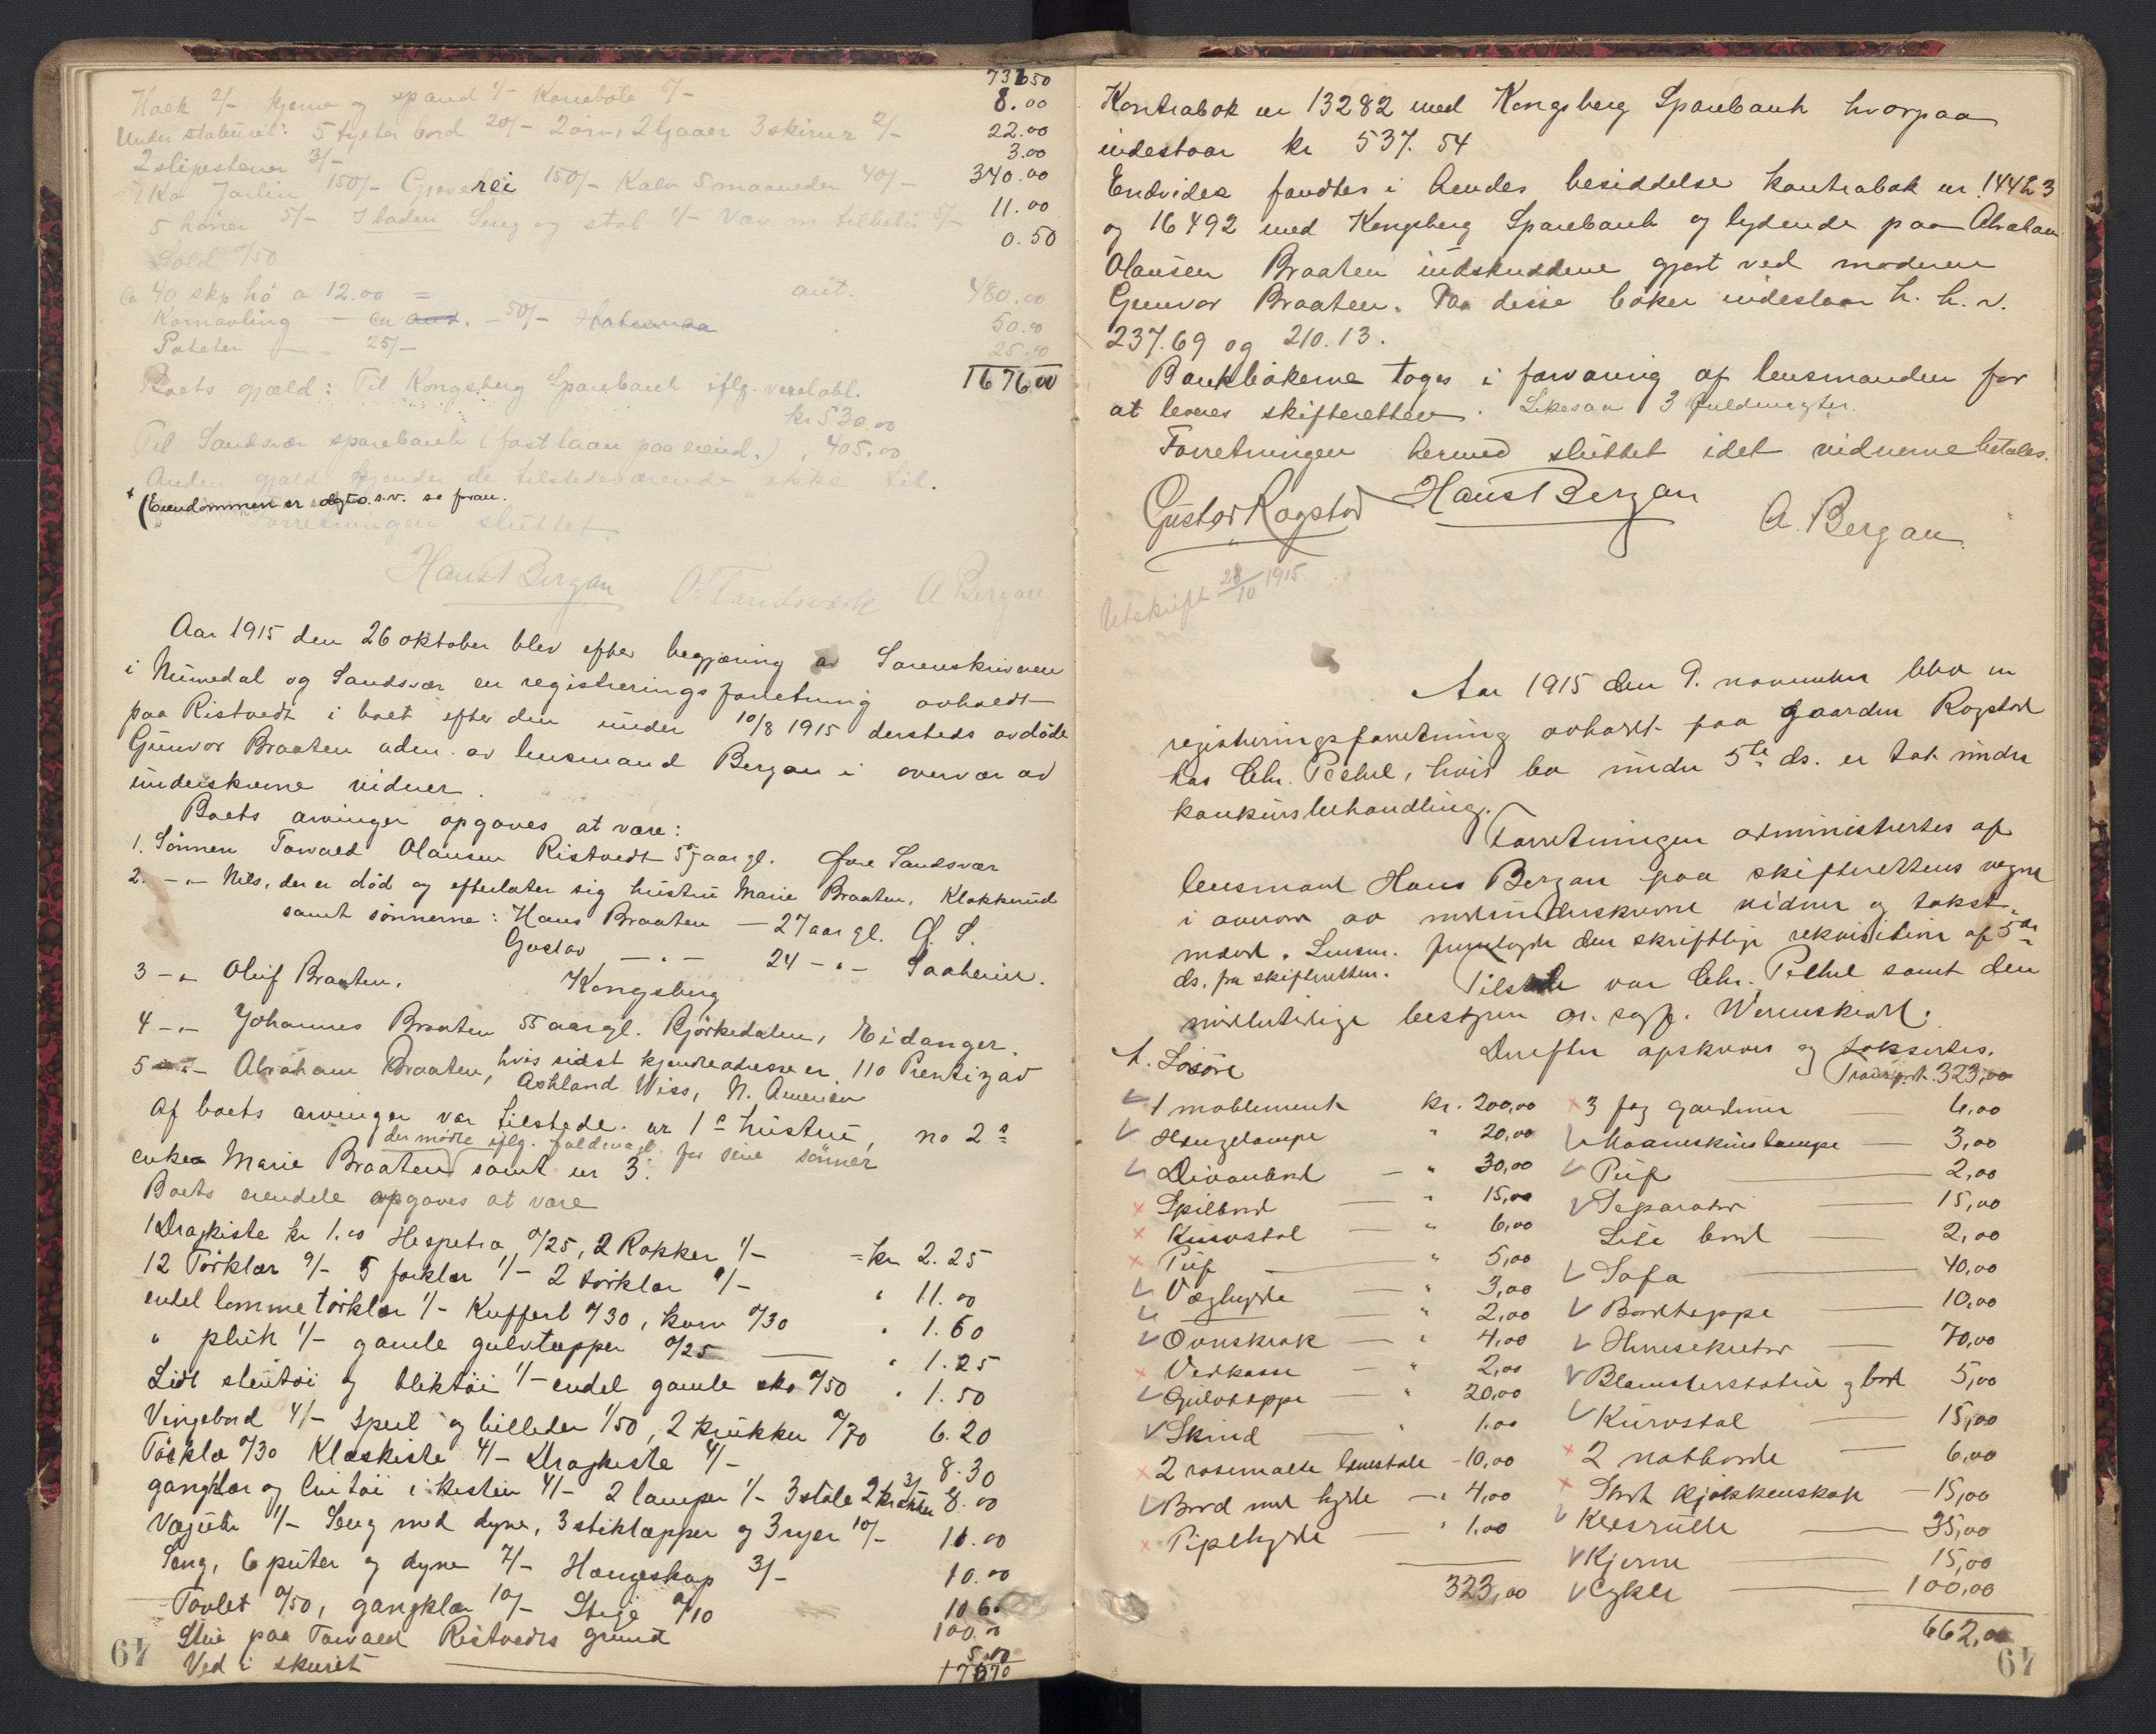 731.50
Hack 2/- kjerne og spand 1/- Konebote 5/- 8.00
Under staburet: 5 tylter bord 20/- 2 orv, 2 ljaaer 3 skirur 2/- 22.00
2 slipestener 3/- 3.00
1 Ko Jarlin 150/- Gjeverei 150/- Kalv 5 maaneder 40/- 340.00
5 høner 5/- I laden Seng og stol 1/- Væv m tilbehør 5/- 11.00
Sold 0/50 0.50
Ca 40 skp hø a 12.00 = ant. 480.00
Kornavling - en - 50/- 50.00
Poteter - 25/- 25.00
1676.00
Boets gjæld: Til Kongsberg Sparebank iflg. vexelobl.
kr 530.00
Til Sandsvær sparebank (fast laan paa eiend.) , 405.00
Anden gjæld kjender de tilstedeværende ikke til.
+ (Eiendommen er solgt o.s.v. se foran.
Forretningen sluttet.
Hans Bergan O. Tandsværk A Bergan
Aar 1915 den 26 oktober blev efter begjæring av Sorenskriveren
i Numedal og Sandsvær en registreringsforretning avholdt
paa Ristvedt i boet efter den under 10/8 1915 dersteds avdøde
Gunvor Braaten adm. av lensmand Bergan i overvær av
underskrevne vidner.
Boets arvinger opgaves at være:
1. Sønnen Torvald Olausen Ristvedt 57 aar gl. Øvre Sandsvær
2. -"- Nils, der er død og efterlater sig hustru Marie Braaten, Klokkerud
samt sønnerne: Hans Braaten - 27 aar gl. Ø. S.
Gustav -"- 24 -"- Saaheim.
3 -"- Oluf Braaten, Kongsberg
4 -"- Johannes Braaten 55 aar gl. Bjørkedalen, Eidanger.
5 -"- Abraham Braaten, hvis sidst kjendte adresse er 110 Prentiz av
Ashland Wiss, N. Amerika
Af boets arvinger var tilstede nr 1s hustru, no 2s
der møtte iflg. fuldmagt for sine sønner
enke Marie Braaten samt nr 3.
Boets eiendele opgaves at være
1 Dragkiste kr 1.00 Hespetræ 0/25, 2 Rokker 1/- = kr 2.25
12 Tørklær 9/- 5 forklær 1/- 2 tørklær 1/- " 11.00
endel lommetørklær 1/- Kuffert 0/30, kurv 0/30 " 1.60
" pluk 1/- gamle gulvtepper 0/25 " 1.25
Lidt stentøi og bliktøi 1/- endel gamle sko 0/50 " 1.50
Vingebord 4/- Speil og billeder 1/50, 2 krukker 0/70 6.20
Tørklæ 0/30 Klæskiste 4/- Dragkiste 4/- 8.30
gangklær og lintøi i kisten 4/- 2 lamper 1/- 3 stole 3/- 8.00
Væguhr 1/- Seng med dyne, 3 stiktepper og 3 ryer 10/- 11.00
Seng, 6 puter og dyne 7/- Hængeskap 3/- 10.00
Tavlet 0/50, gangklær 10/- Stige 0/10 10 60
Stue paa Torvald Ristvedts grund 100.00
Ved i skuret 5.00
176.70
64
Kontrabok nr 13282 med Kongsberg Sparebank hvorpaa
indestaar kr 537.54
Endvidere fandtes i hendes besiddelse kontrabok nr. 14423
og 16492 med Kongsberg Sparebank og lydende paa Abraham
Olausen Braaten indskuddene gjort ved moderen
Gunvor Braaten. Paa disse bøker indestaar h. h. v.
237.69 og 210.13.
Bankbøkerne toges i forvaring af lensmanden for
at leveres skifteretten. Likesaa 3 fuldmagter.
Forretningen hermed sluttet idet vidnerne betales.
Gustav Rogstad Hans Bergan A. Bergan
Utskrift 28/10 1915.
Aar 1915 den 9. november blev en
registreringsforretning avholdt paa gaarden Rogstad
hos Chr. Pethel, hvis bo under 5te ds. er tat under
konkursbehandling.
Forretningen administrertes af
lensmand Hans Bergan paa skifterettens vegne
i overvær av medunderskrevne vidner og takst-
mænd. Lensm. fremlagde den skriftlige rekvisition af 5te
ds. fra skifteretten.
Tilstede var Chr. Pethel samt den
midlertidige bestyrer or. sagf. Wernskiold.
Derefter opskreves og taksertes.
A. Løsøre
1 moblement kr. 200,00
Hengelampe " 20,00
Divanbord - " 30,00
Spilbord - " 15,00
Kurvstol - " 6,00
Puf " 5,00
Væghylde - " 3,00
" 2,00
Ovnskrok - " 4,00
Vedkasse - " 2,00
Gulvteppe - " 20,00
Skind " 1.00
2 rosemalte lænestole - 10,00
Bord med hylde - " 4,00
Pipehylde " 1.00
323,00
Transport. 323,00
3 fag gardiner 6,00
Maaneskinslampe - 3,00
Puf 2,00
Separator 15,00
Lite bord 2,00
Sofa 40,00
Bordteppe 10,00
Herresekretær 70,00
Blomsterstativ og bord 5,00
Kurvstol 15,00
2 natborde 6,00
Stort kjøkkenskap - 15,00
Klesrulle 35,00
Kjerne 15,00
Cykle 100,00
662,00
64